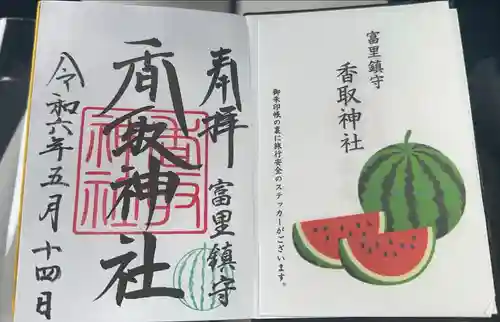 奉拝 富里鎮守
香取神社
令和六年五月十四日
香取神社
富里鎮守
香取神社
御朱印帳の裏に旅行安全のステッカーがございます。